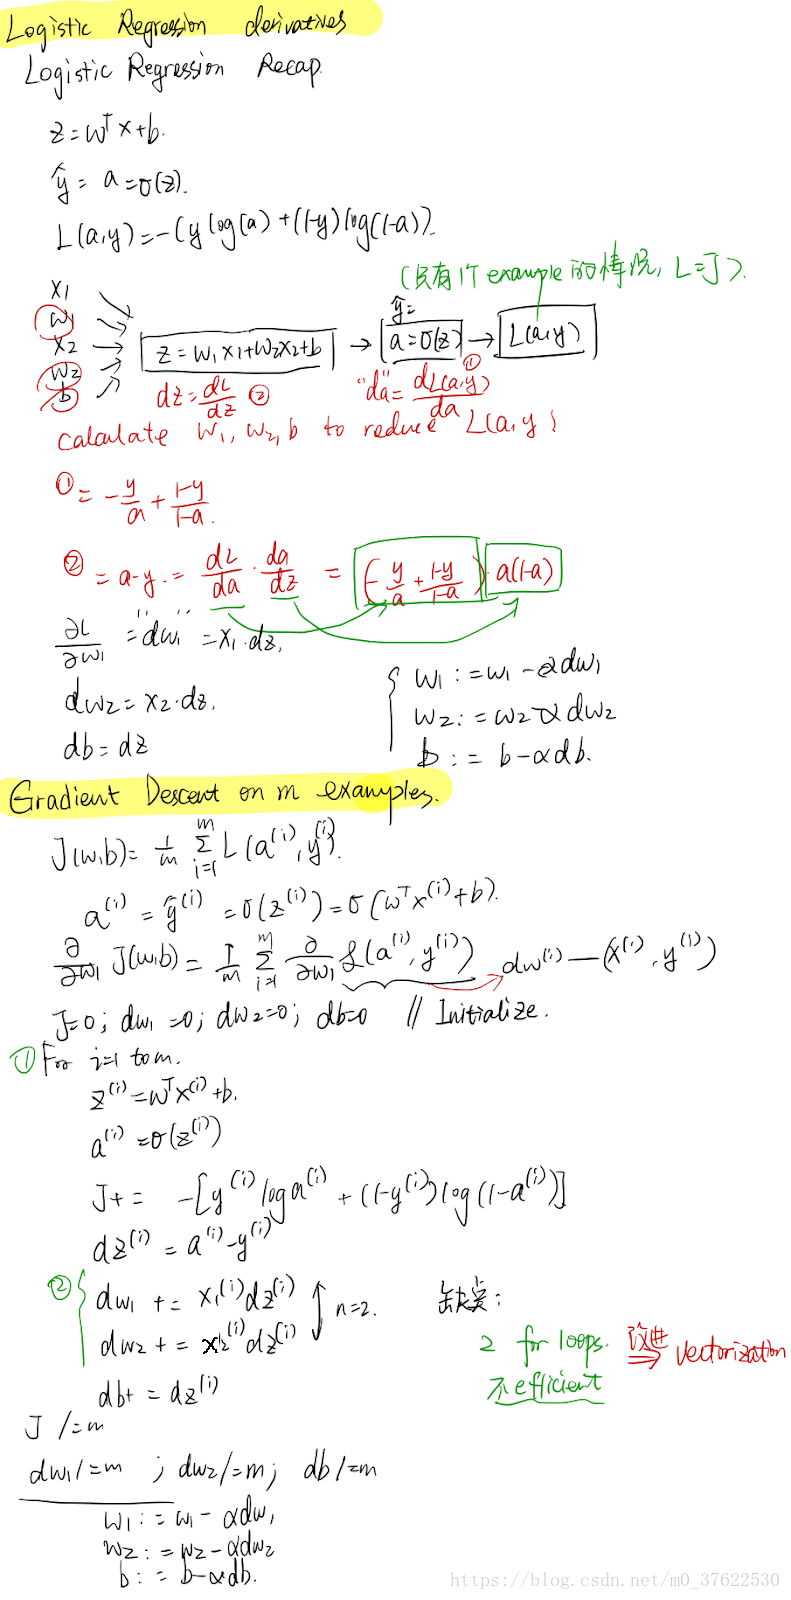 Logistic Regression derivatives
Logistic Regression Recap
z = wᵀx + b.
ŷ = a = σ(z).
L(a,y) = -(y log(a) + (1-y) log(1-a)).
(只有1个example的情况, L=J).
x₁
w₁
x₂
w₂
b
z = w₁x₁+w₂x₂+b → ŷ= a=σ(z) → L(a,y)
dz = dL/dz ② "da" = dL(a,y)/da ①
calculate w₁, w₂, b to reduce L(a,y)
① = -y/a + 1-y/1-a.
② = a-y. = dL/da · da/dz = (-y/a + 1-y/1-a) · a(1-a)
∂L/∂w₁ = "dw₁" = x₁·dz.
dw₂ = x₂·dz.
db = dz
w₁ := w₁ - αdw₁
w₂ := w₂ - αdw₂
b := b - αdb.
Gradient Descent on m examples.
J(w,b) = 1/m Σᵢ₌₁ᵐ L(a⁽ⁱ⁾, y⁽ⁱ⁾).
a⁽ⁱ⁾ = ŷ⁽ⁱ⁾ = σ(z⁽ⁱ⁾) = σ(wᵀx⁽ⁱ⁾+b).
∂/∂w₁ J(w,b) = 1/m Σᵢ₌₁ᵐ ∂/∂w₁ L(a⁽ⁱ⁾, y⁽ⁱ⁾) dw⁽ⁱ⁾ — (x⁽ⁱ⁾, y⁽ⁱ⁾)
J=0; dw₁=0; dw₂=0; db=0 // Initialize.
① For i=1 to m.
z⁽ⁱ⁾ = wᵀx⁽ⁱ⁾+b.
a⁽ⁱ⁾ = σ(z⁽ⁱ⁾)
J += -[y⁽ⁱ⁾ log a⁽ⁱ⁾ + (1-y⁽ⁱ⁾) log(1-a⁽ⁱ⁾)]
dz⁽ⁱ⁾ = a⁽ⁱ⁾-y⁽ⁱ⁾
② dw₁ += x₁⁽ⁱ⁾dz⁽ⁱ⁾
dw₂ += x₂⁽ⁱ⁾dz⁽ⁱ⁾
n=2.
db += dz⁽ⁱ⁾
缺点:
2 for loops. 改进 ⇒ vectorization
不efficient
J /= m
dw₁ /= m ; dw₂ /= m; db /= m
w₁ := w₁ - αdw₁
w₂ := w₂ - αdw₂
b := b - αdb.
https://blog.csdn.net/m0_37622530